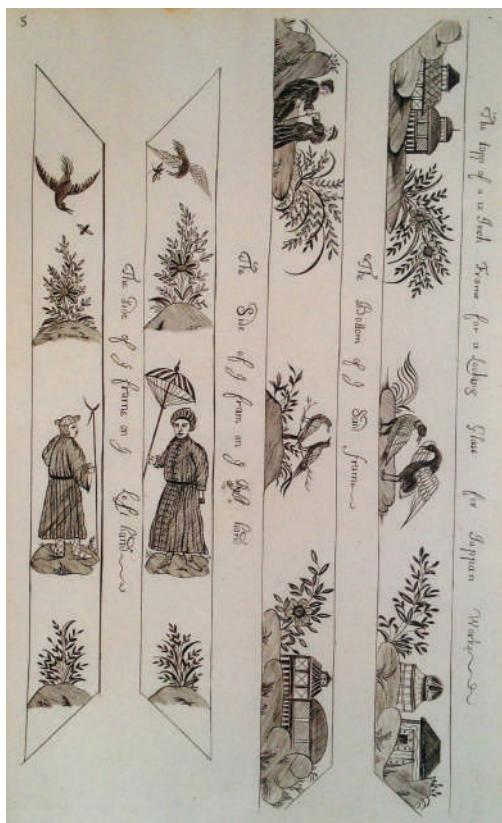 5
The topp of a 12 Inch Frame for a Looking Glass for Jappan Work
The Bottom of y Said frame
The Side of y fram on y hand
The Side of y frame on y Left hand